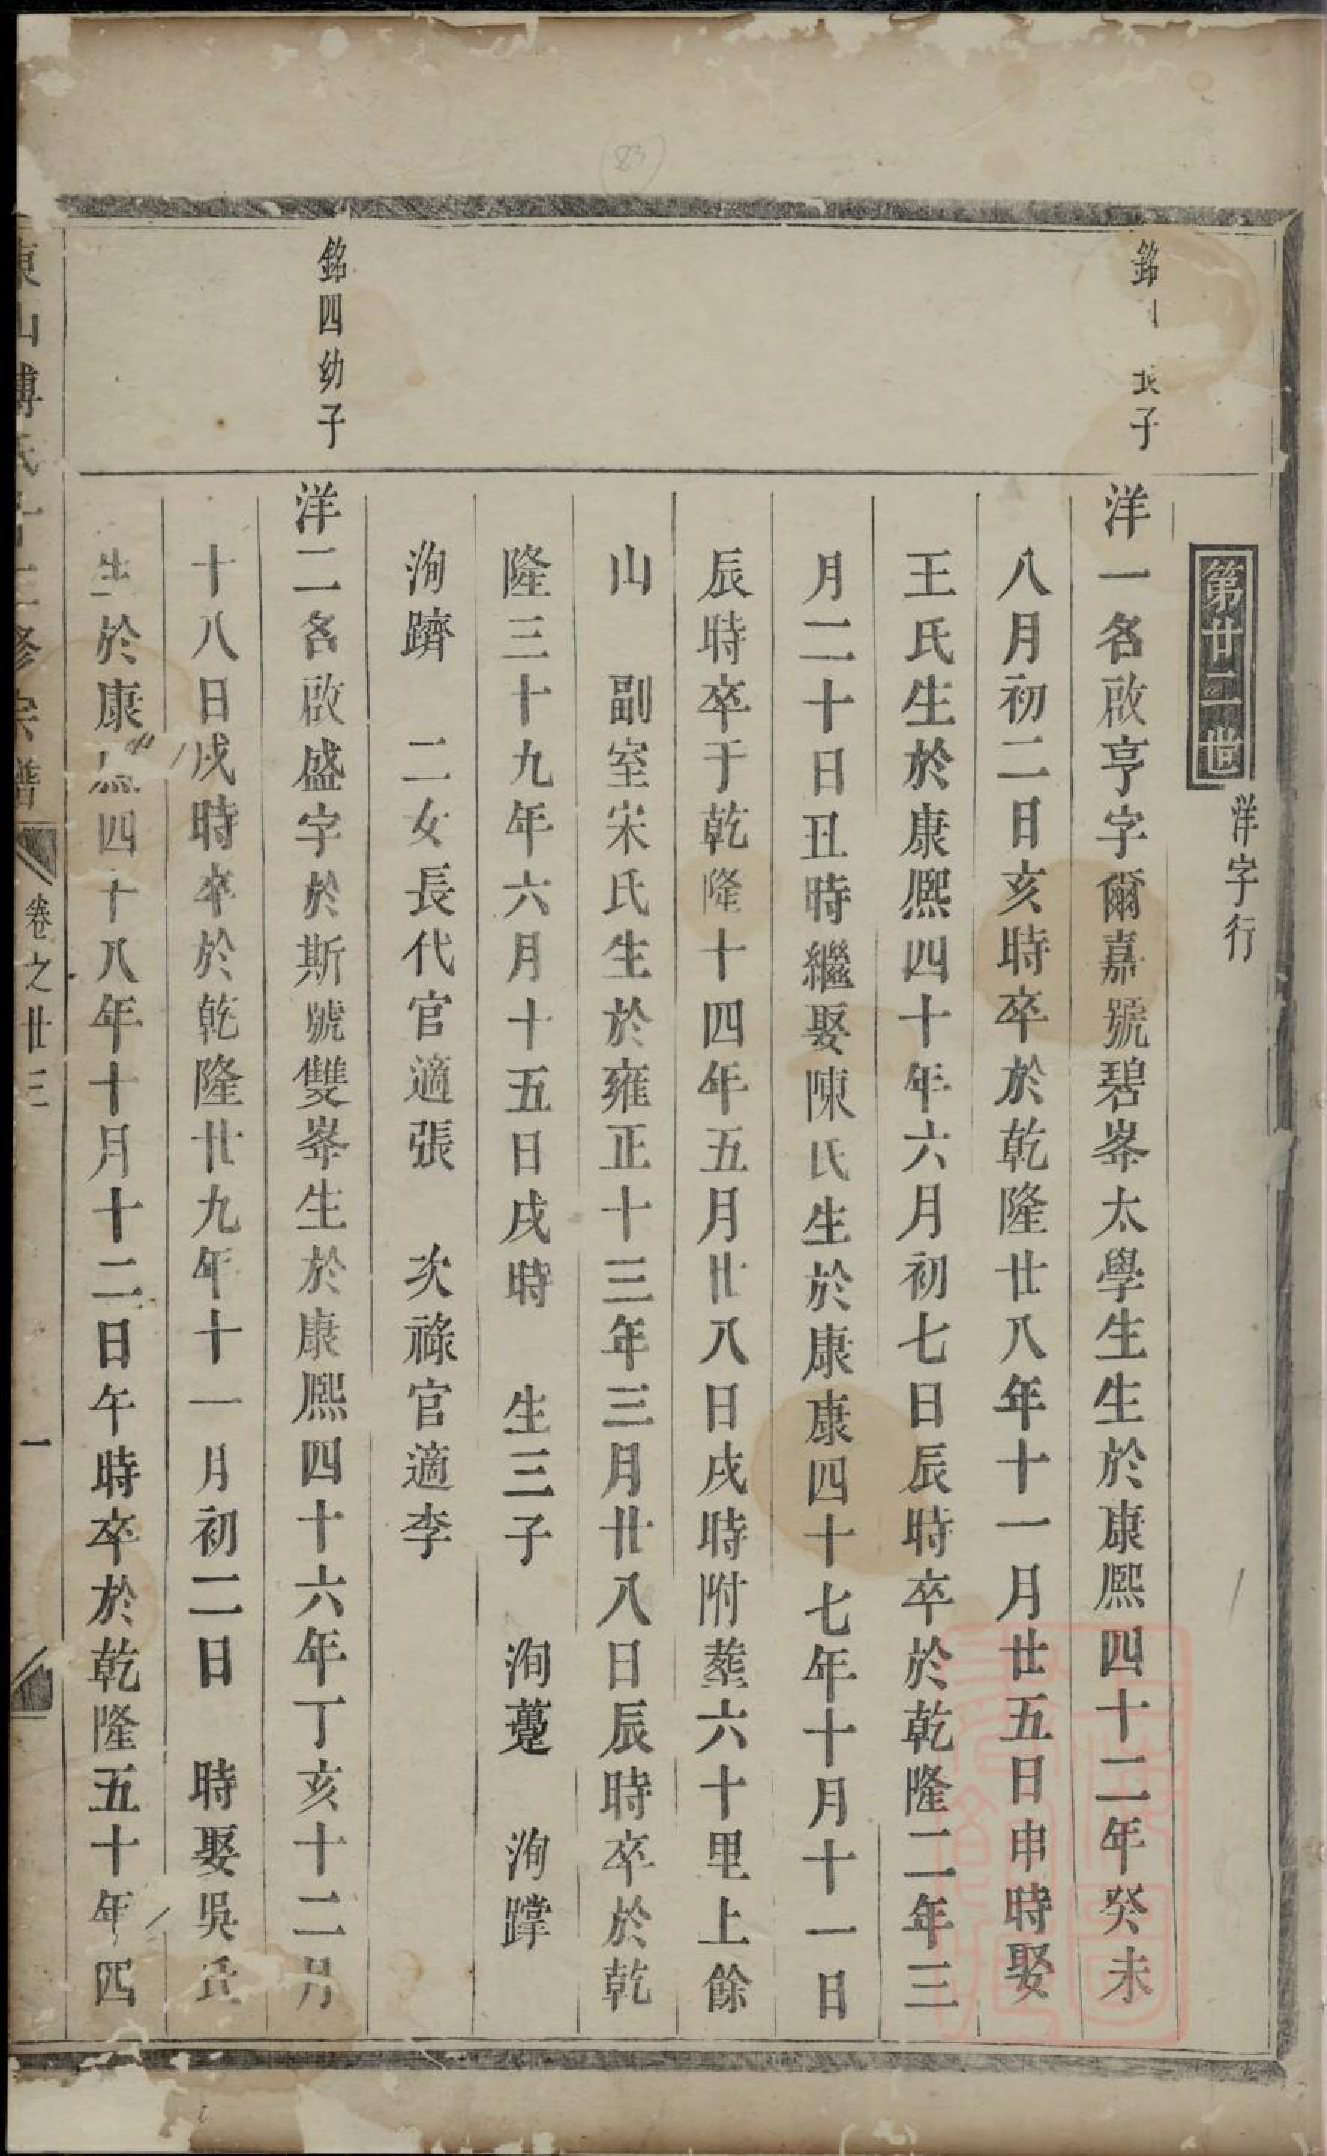 第廿二世
洋字行
銘 長子
洋一名啟亨字爾嘉號碧峯太學生生於康熙四十二年癸未
八月初二日亥時卒於乾隆廿八年十一月廿五日申時娶
王氏生於康熙四十年六月初七日辰時卒於乾隆二年三
月二十日丑時繼娶陳氏生於康康四十七年十月十一日
辰時卒于乾隆十四年五月廿八日戌時附葬六十里上餘
山 副室宋氏生於雍正十三年三月廿八日辰時卒於乾
隆三十九年六月十五日戌時 生三子 洵躉 洵蹕
洵躋 二女長代官適張 次祿官適李
銘四幼子
洋二名啟盛字於斯號雙峯生於康熙四十六年丁亥十二月
十八日戌時卒於乾隆廿九年十一月初二日 時娶吳氏
生於康熙四十八年十月十二日午時卒於乾隆五十年四
東山傅氏 三修宗譜
卷之廿三
一
83